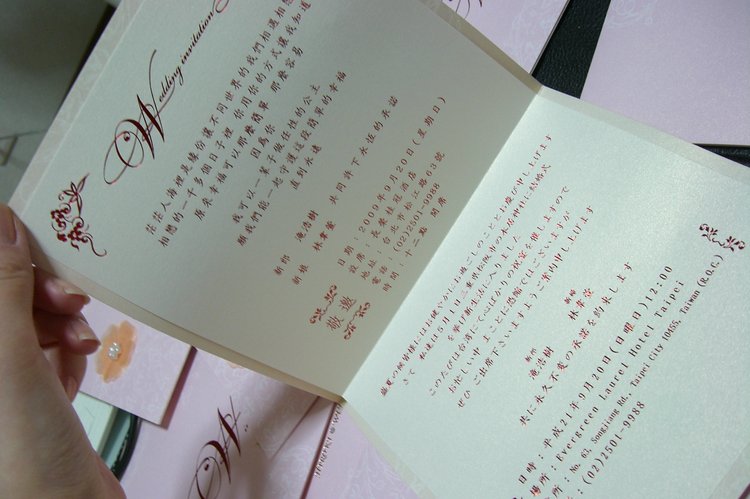 Wedding invitation
茫茫人海裡是緣份讓不同世界的我們相遇相戀
相戀的一千多個日子裡 你用你的方式讓我知道
原來幸福可以那麼簡單 那麼容易
因為你
我可以一輩子做任性的公主
願我們倆一起守護這段簡單的幸福
直到永遠
新郎 滝浩樹
新娘 林葦萱
共同許下永恆的承諾
敬邀
日期：2009年9月20日(星期日)
設席：長榮桂冠酒店
地址：台北市松江路63號
電話：(02)2501-9988
時間：十二點 開席
盛夏の候皆様にはお健やかにお過ごしのこととお慶び申し上げます
さて 私達は5月1日三重県松阪市の本居神社に結婚式
を挙げ新生活に入りました
このたびは台湾にて心ばかりの祝宴を催しますので
お忙しい中 まことに恐縮ではございますが
ぜひ ご出席下さいますようご案内申し上げます
新郎 滝浩樹
新婦 林葦萱
共に永久不変の承諾を約束します
日時：平成21年9月20日(日曜日)12:00
場所：Evergreen Laurel Hotel Taipei
所：No. 63, Songjiang Rd., Taipei City 10455, Taiwan (R.O.C.)
：(02)2501-9988
W